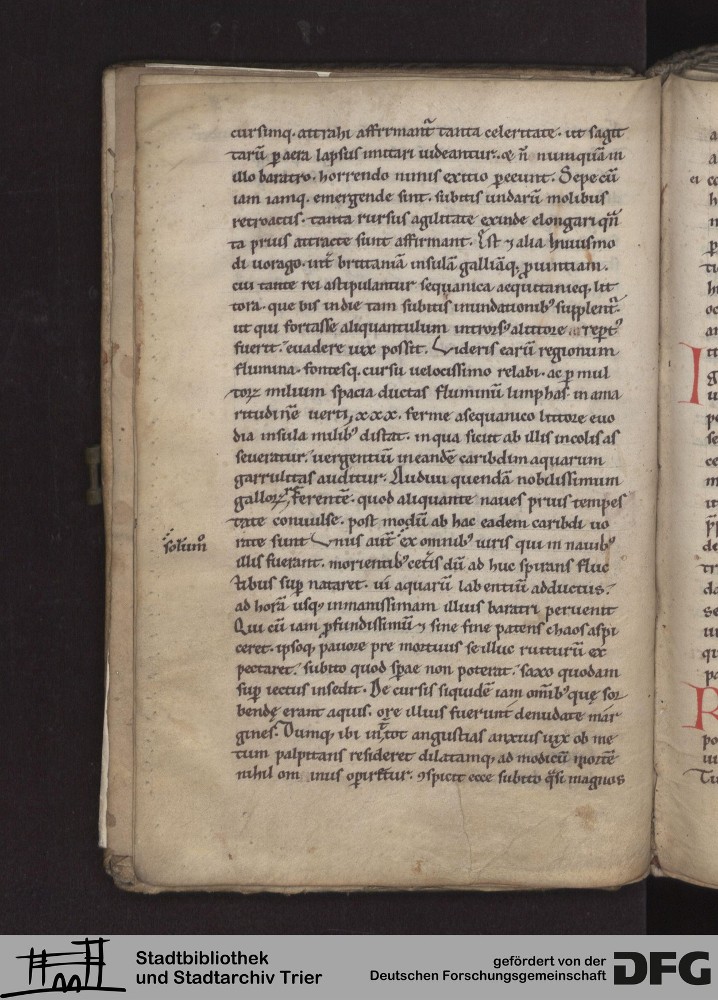 cursimq. attrahi affirmant̄ tanta celeritate. ut sagit
tarū ꝑ aera lapsus imitari uideantur. & n̄ numquā in
illo baratro. horrendo nimis exitio ꝑeunt. Sepe cū
iam iamq. emergende sint. subitis undarū molibus
retroactis. tanta rursus agilitate exinde elongari qn̄
ta prius attracte sunt affirmant. Est ⁊ alia huiusmo
di uorago. int̄ brittaniā insulā galliāq; ꝓuintiam.
cui tante rei astipulantur sequanica aequitanieq. lit
tora. que bis in die tam subitis inundationibꝰ supplent̄.
ut qui fortasse aliquantulum introrsꝰ a littore reꝑtꝰ
fuerit. euadere uix possit. Uideris earū regionum
flumina. fontesq. cursu uelocissimo relabi. ac ꝑ mul
torꝝ milium spacia ductas fluminū limphas in ama
ritudinē uerti, xxx. ferme a sequanico littore euo
dia insula milibꝰ distat. in qua sicut ab illis incolis as
seueratur. uergentiū in eandē caribdim aquarum
garrulitas auditur. Audiui quendā nobilissimum
gallorꝝ, ferentē. quod aliquante naues prius tempes
tate conuulse. post modū ab hac eadem caribdi uo
solummo
rate sunt Unus aut̄ ex omnibꝰ uiris qui in nauibꝰ
illis fuerant. morientibꝰ cet̄is dū ad huc spirans fluc
tibus suꝑ nataret. ui aquarū labentiū adductus.
ad horā usq; inmanissimam illius baratri peruenit
Qui cū iam ꝓfundissimū ⁊ sine fine patens chaos aspi
ceret. ipsoq; pauore pre mortuus se illuc rutturū ex
pectaret. subito quod sꝑare non poterat. saxo quodam
suꝑ iectus insedit. De cursis siquidē iam om̄ibꝰ quę sor
bendę erant aquis. orę illius fuerunt denudate mar
gines. Dumq; ibi int̄ tot angustias anxius uix ob me
tum palpitans resideret dilatamq; ad modicū mortē
nihil om inus oꝑiret̄ur. ꝯspicit ecce subito q̄si magnos
Stadtbibliothek
und Stadtarchiv Trier
gefördert von der
Deutschen Forschungsgemeinschaft
DFG